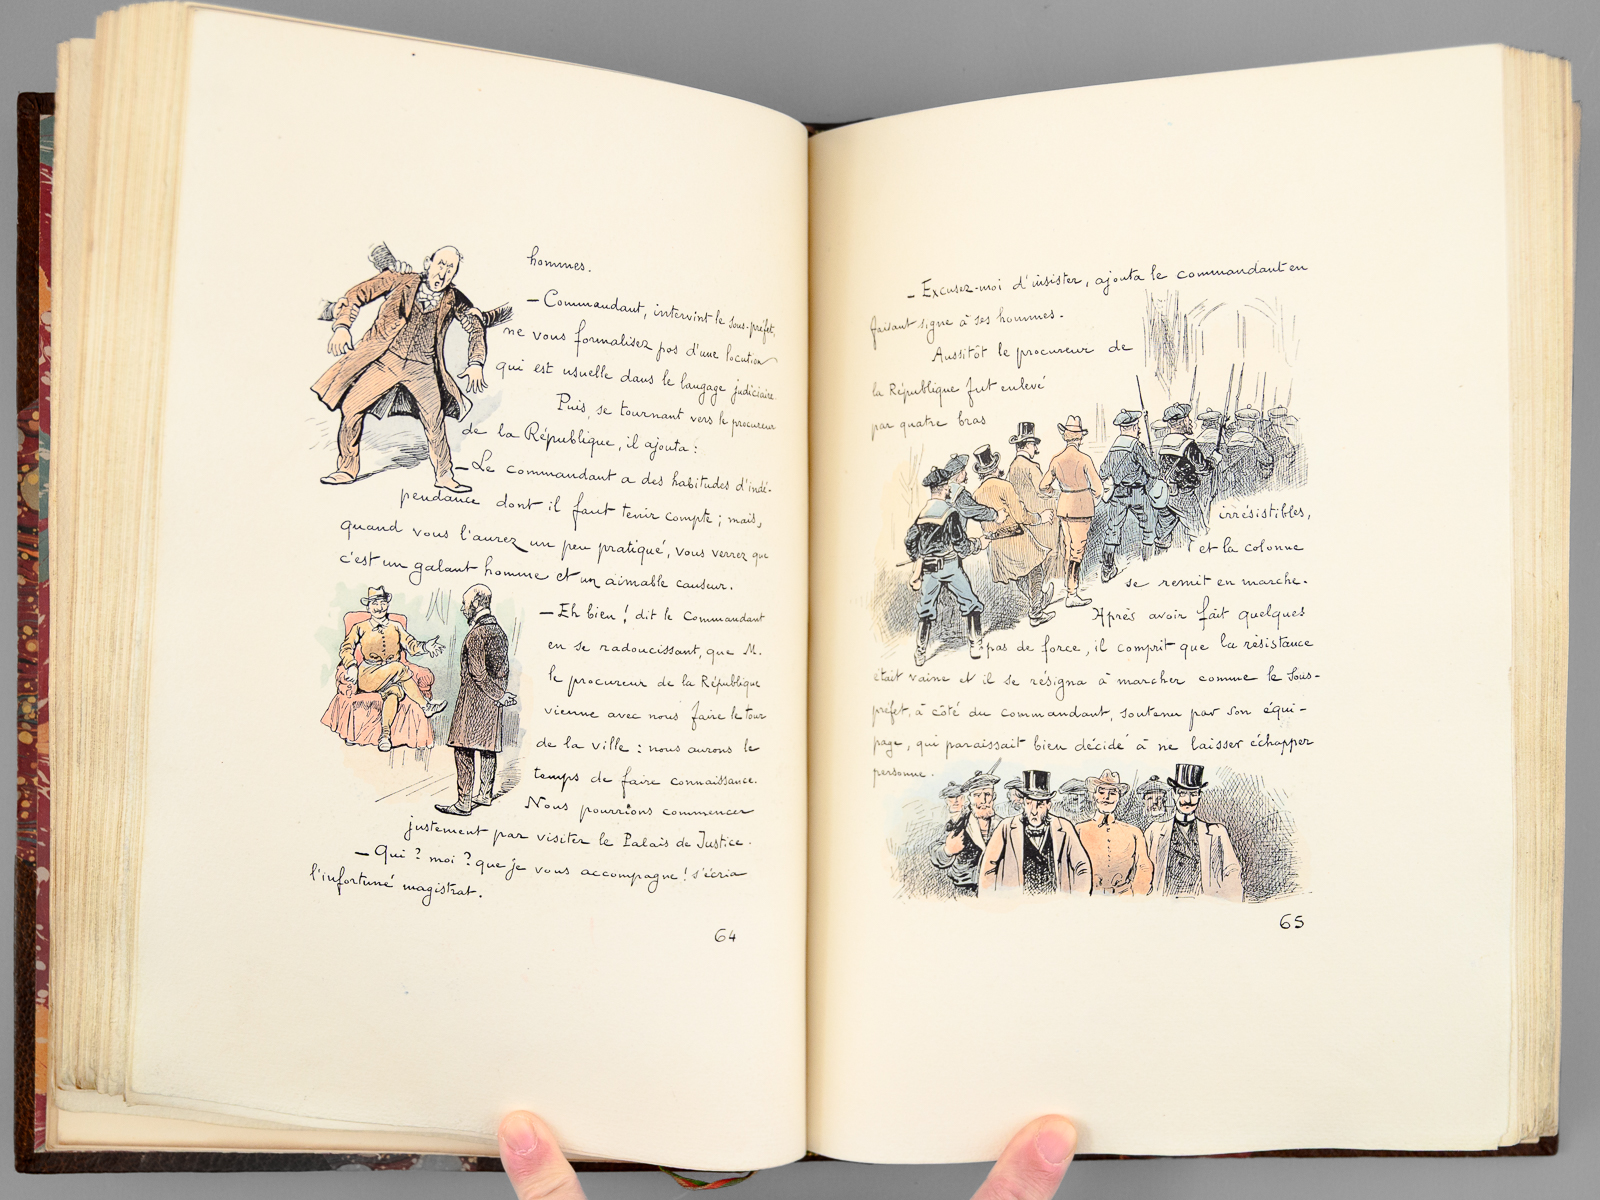 hommes.
— Commandant, intervint le sous-préfet,
ne vous formalisez pas d'une locution
qui est usuelle dans le langage judiciaire.
Puis, se tournant vers le procureur
de la République, il ajouta :
— Le commandant a des habitudes d'indé-
pendance dont il faut tenir compte ; mais,
quand vous l'aurez un peu pratiqué, vous verrez que
c'est un galant homme et un aimable causeur.
— Eh bien ! dit le Commandant
en se radoucissant, que M.
le procureur de la République
vienne avec nous faire le tour
de la ville : nous aurons le
temps de faire connaissance.
Nous pourrions commencer
justement par visiter le Palais de Justice.
— Qui ? moi ? que je vous accompagne ! s'écria
l'infortuné magistrat.
64
— Excusez-moi d'insister, ajouta le commandant en
faisant signe à ses hommes.
Aussitôt le procureur de
la République fut enlevé
par quatre bras
irrésistibles,
et la colonne
se remit en marche.
Après avoir fait quelques
pas de force, il comprit que la résistance
était vaine et il se résigna à marcher comme le Sous-
préfet, à côté du commandant, soutenu par son équi-
page, qui paraissait bien décidé à ne laisser échapper
personne.
65